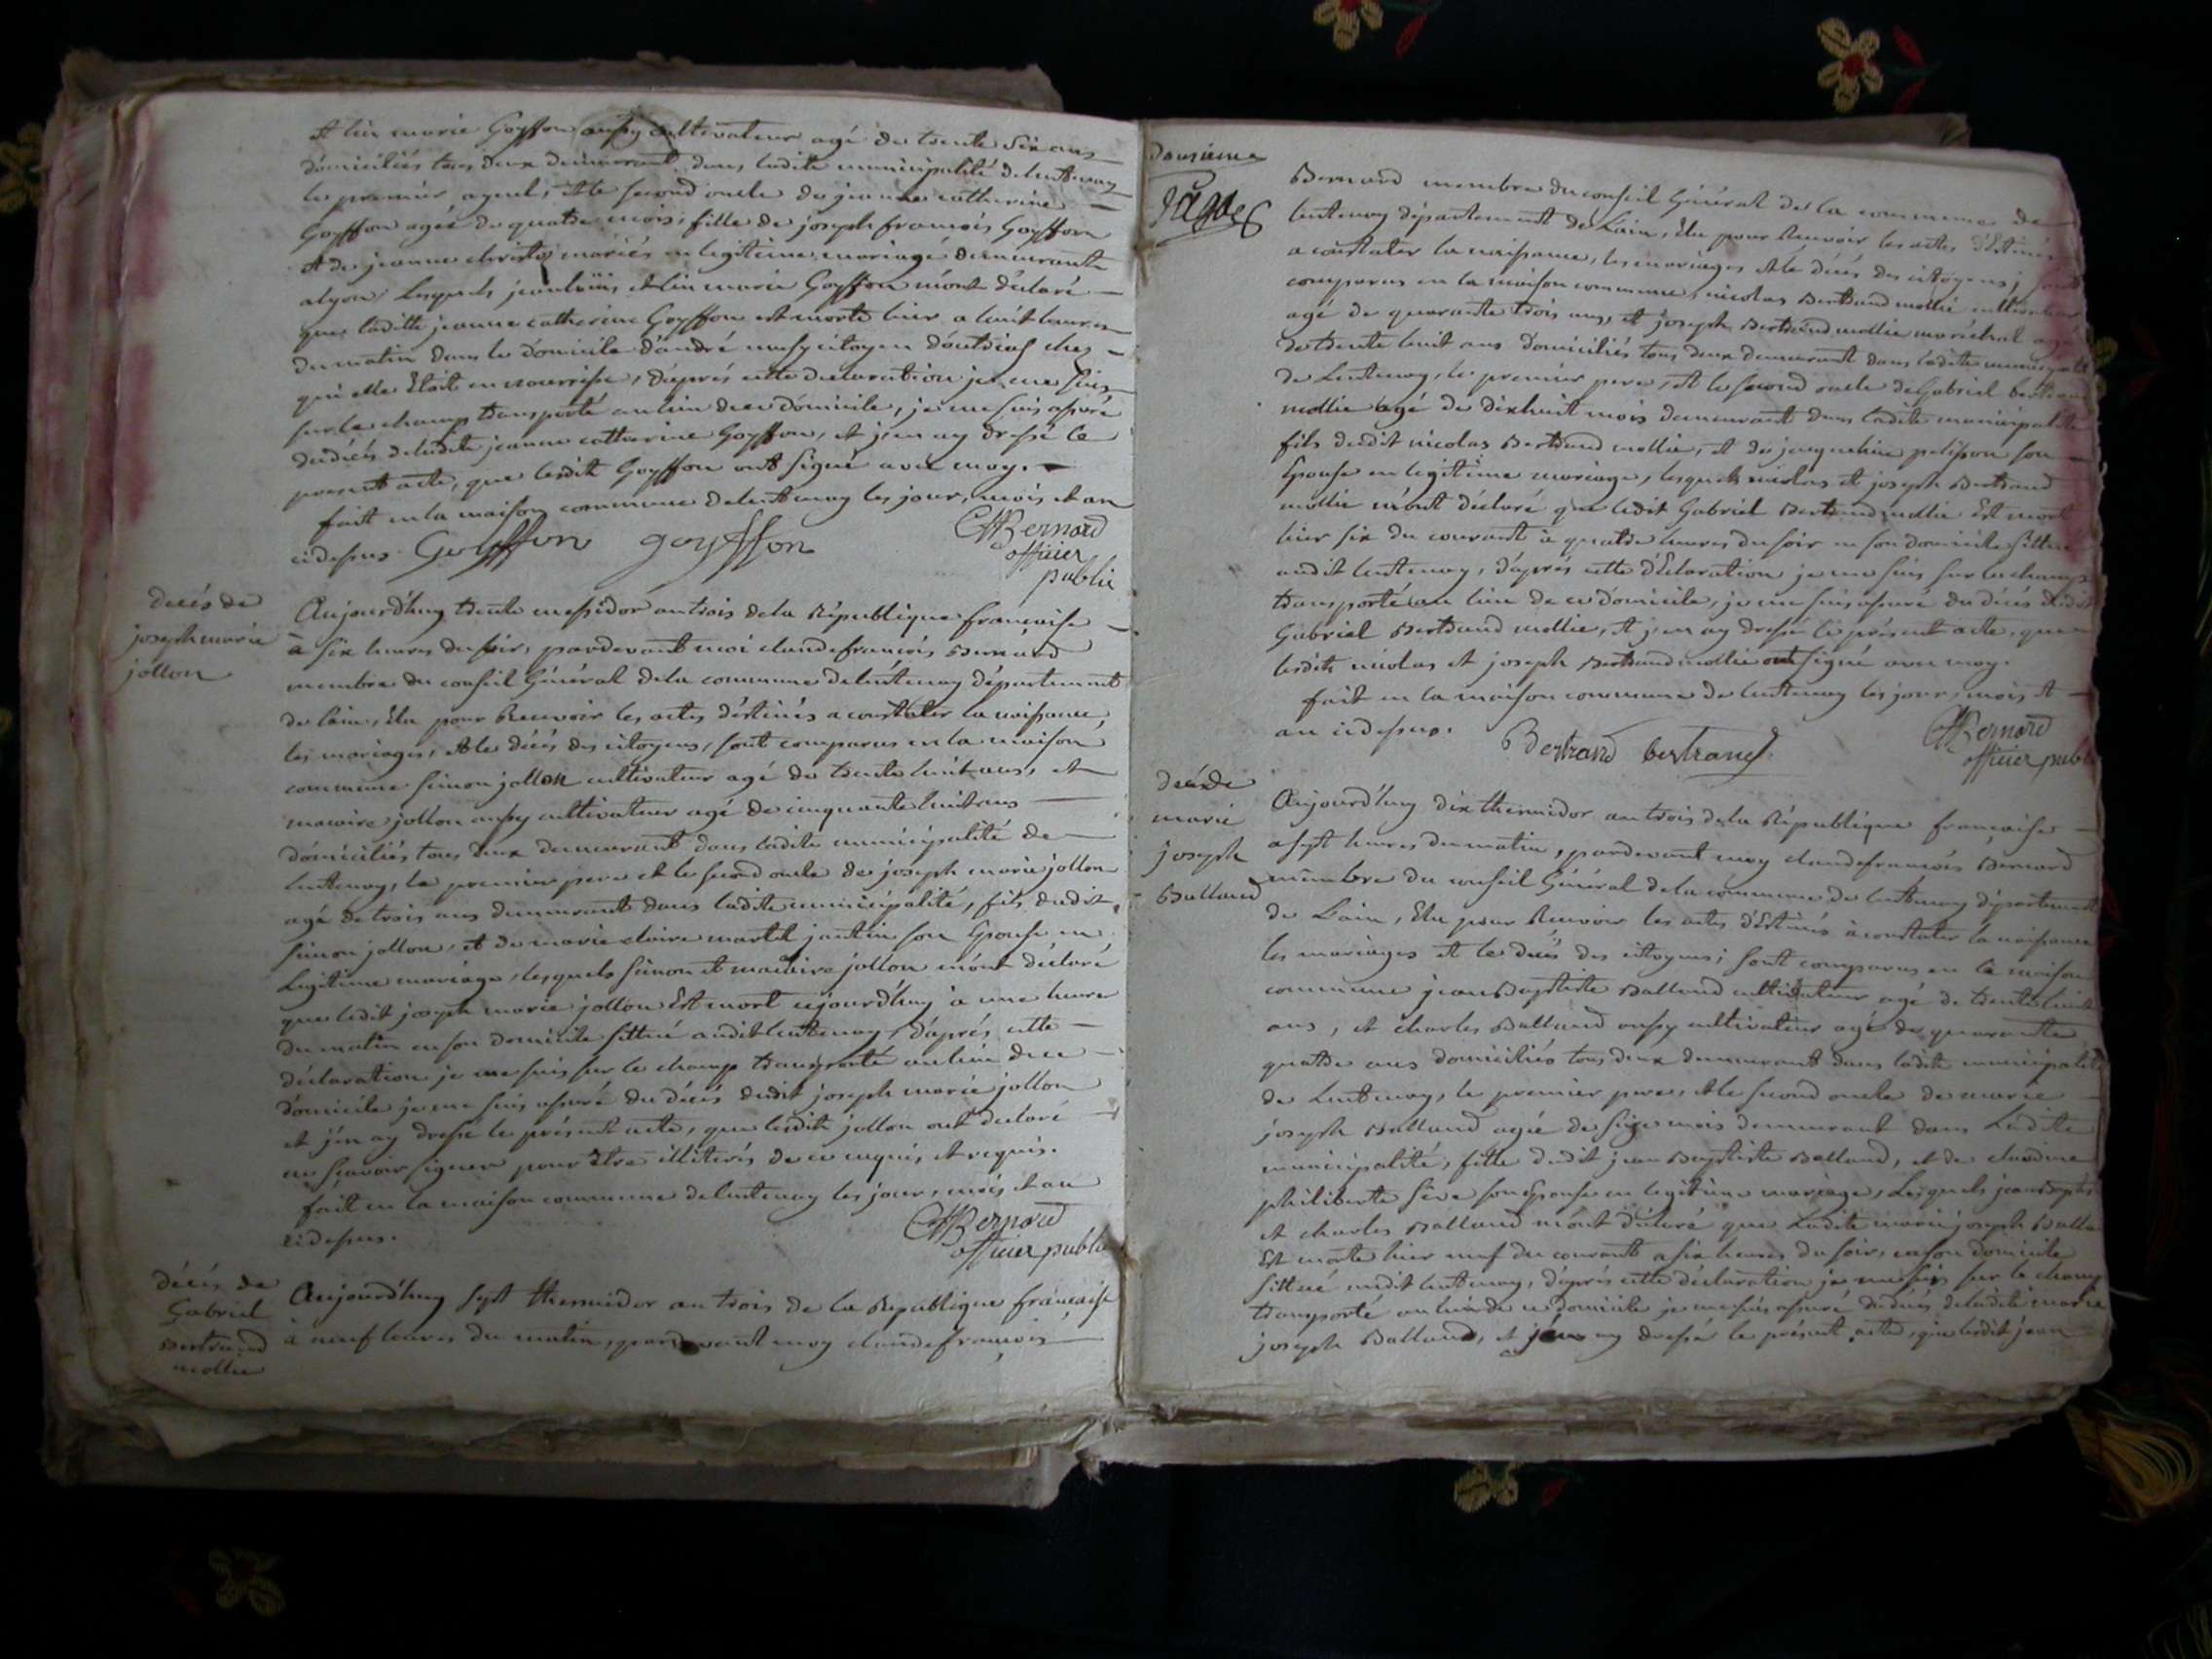 marie Goyffon aussy cultivateur agé de trente six ans
domiciliés tous deux demeurant dans ladite municipalité delentenay
le premier ayeul, et le second oncle de jeanne catherine
Goyffon agée de quatre mois, fille de joseph françois Goyffon
et de jeanne mariés en legitime mariage demeurants
alyon, Lesquels et marie Goyffon m'ont déclaré
que laditte jeanne catherine Goyffon est morte hier a huit heures
du matin dans le domicile d'andré citoyen chez
qui elle Etoit en nourrisse, d'aprés cette declaration je me suis
sur le champ transporté au lieu de ce domicile, je me suis assuré
du décés deladite jeanne catherine Goyffon, et j'en ay dressé le
present acte, que lesdits Goyffon ont signé avec moy.
fait en la maison commune delentenay les jour, mois et an
cidessus. Goyffon goyffon CfBernard
officier
public
decés de
joseph marie
jollon
Aujourd'huy trente messidor an trois de la République française
à six heures du soir, pardevant moi claude françois Bernard
membre du conseil Général dela commune delentenay département
de lain, Elu pour Recevoir les actes déstinés a constater la naissance,
les mariages, et le décés des citoyens, sont comparus en la maison
commune simon jollon cultivateur agé de trente huit ans, et
jollon aussy cultivateur agé de cinquante huit ans
domiciliés tous deux demeurant dans ladite municipalité de
lentenay, le premier pere et le second oncle de joseph marie jollon
agé de trois ans demeurant dans ladite municipalité, fils dudit
simon jollon, et de marie claire martel jantin son Epouse en
Legitime mariage, lesquels simon et jollon m'ont déclaré
que ledit joseph marie jollon Est mort aujourd'huy à une heure
du matin en son domicile sittué audit lentenay, d'aprés cette
déclaration je me suis sur le champ transporté au lieu de ce
domicile je me suis assuré du décés dudit joseph marie jollon
et j'en ay dressé le présent acte, que lesdits jollon ont déclaré
ne sçavoir signer pour être illiterés de ce enquis, et requis.
fait en la maison commune delentenay les jour, mois et an
cidessus.
CfBernard
officier public
décés de
Gabriel
Bertrand
mollie
Aujourd'huy sept thermidor an trois de la République française
à neuf heures du matin, pardevant moy claude françois
douzieme
Bernard membre du conseil Général de la commune de
lentenay département de Lain, Elu pour Recevoir les actes déstinés
a constater la naissance, les mariages et le décés des citoyens; sont
comparus en la maison commune, nicolas Bertrand mollie cultivateur
agé de quarante trois ans, et joseph Bertrand mollie maréchal agé
de trente huit ans domiciliés tous deux demeurant dans ladite municipalité
de Lentenay, le premier pere, et le second oncle de Gabriel bertrand
mollie agé de dixhuit mois demeurant dans ladite municipalité
fils dudit nicolas Bertrand mollie, et de jacqueline pelisson son
Epouse en legitime mariage, lesquels nicolas et joseph Bertrand
mollie m'ont déclaré que ledit Gabriel Bertrand mollie Est mort
hier six du courant à quatre heures du soir en son domicile sittué
audit lentenay, d'aprés cette déclaration je me suis sur le champ
transporté au lieu de ce domicile, je me suis assuré du décés dudit
Gabriel Bertrand mollie, et j'en ay dressé le présent acte, que
lesdits nicolas et joseph Bertrand mollie ont signé avec moy.
fait en la maison commune de lentenay les jour, mois et
an cidessus.
Bertrand bertrand CfBernard
officier public
décés de
marie
joseph
Balland
Aujourd'huy dix thermidor an trois dela République française
a sept heures du matin, pardevant moy claude françois Bernard
membre du conseil Général dela commune de lentenay département
de Lain, Elu pour Recevoir les actes déstinés à constater la naissance
les mariages et le décés des citoyens; sont comparus en la maison
commune jean Baptiste Balland cultivateur agé de trente huit
ans, et charles Balland aussy cultivateur agé de quarante
quatre ans domiciliés tous deux demeurant dans ladite municipalité
de Lentenay, le premier pere, et le second oncle de marie
joseph Balland agée de seize mois demeurant dans Ladite
municipalité, fille dudit jean Baptiste Balland, et de claudine
philiberte séve son Epouse en legitime mariage, Lesquels jean Baptiste
et charles Balland m'ont déclaré que Ladite marie joseph Balland
Est morte hier neuf du courant a six heures du soir, en son domicile
sittué audit lentenay, d'aprés cette déclaration je me suis sur le champ
transporté au lieu de ce domicile je me suis assuré du décés deladite marie
joseph Balland, et j'en ay dressé le présent acte, que lesdits jean